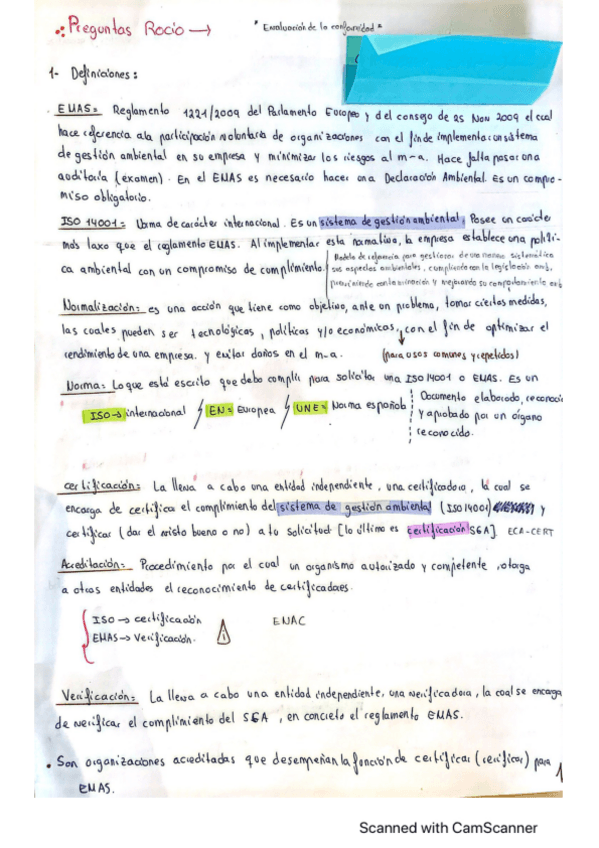 ∴ Preguntas Rocio → "Evaluación de la conformidad"
1- Definiciones:
EMAS= Reglamento 1221/2009 del Parlamento Europeo y del consejo de 25 Nov 2009 el cual
hace referencia a la participación voluntaria de organizaciones con el fin de implementar un sistema
de gestión ambiental en su empresa y minimizar los riesgos al m-a. Hace falta pasar una
auditoría (examen). En el EMAS es necesario hacer una Declaración Ambiental. Es un compro-
miso obligatorio.
ISO 14001= Norma de carácter internacional. Es un sistema de gestión ambiental. Posee un carácter
más laxo que el reglamento EMAS. Al implementar esta normativa, la empresa establece una políti-
ca ambiental con un compromiso de cumplimiento.
Modelo de referencia para gestionar de una manera sistemática
sus aspectos ambientales, cumpliendo con la legislación amb,
previniendo contaminación y mejorando su comportamiento amb
Normalización: es una acción que tiene como objetivo, ante un problema, tomar ciertas medidas,
las cuales pueden ser tecnológicas, políticas y/o económicas, con el fin de optimizar el
rendimiento de una empresa. y evitar daños en el m-a. (para usos comunes y repetidos)
Norma: Lo que está escrito que debo cumplir para solicitar una ISO 14001 o EMAS. Es un
ISO → internacional / EN= Europea / UNE= Norma española
Documento elaborado, reconoci
y aprobado por un órgano
reconocido.
certificación: La lleva a cabo una entidad independiente, una certificadora, la cual se
encarga de certifica el cumplimiento del sistema de gestión ambiental (ISO 14001) y
certificar (dar el visto bueno o no) a tu solicitud [lo último es certificación SGA] ECA-CERT
Acreditación: Procedimiento por el cual un organismo autorizado y competente otorga
a otras entidades el reconocimiento de certificadores.
ISO → certificación ENAC
EMAS → Verificación.
Verificación: La lleva a cabo una entidad independiente, una verificadora, la cual se encarga
de verificar el complimiento del SGA, en concreto el reglamento EMAS.
• Son organizaciones acreditadas que desempeñan la función de certificar (verificar) para
EMAS.
1
Scanned with CamScanner